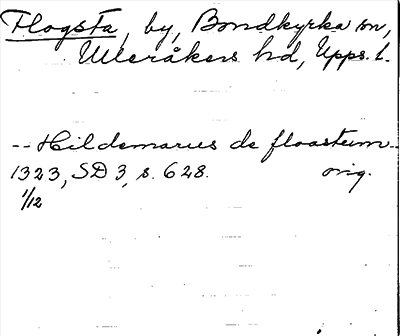 Flogsta, by, Bondkyrka sn,
Ulleråkers hd, Upps. l.
-- Hildemarus de floastum --
1323, SD 3, s. 628. orig.
1/12